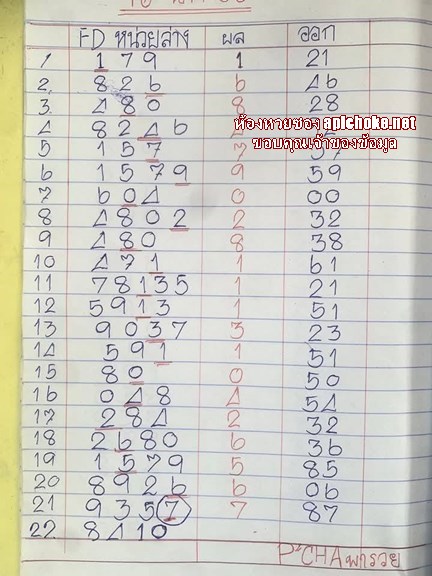 FD หน่วยล่าง ผล ออก
1 179 1 21
2. 826 6 46
3. 480 8 28
4 8246
ห้องหวยซอง apichoke.net
5 157 7 57
ขอบคุณเจ้าของข้อมูล
6 1579 9 59
7 604 0 00
8 4802 2 32
9 480 8 38
10 471 1 61
11 78135 1 21
12 5913 1 51
13 9037 3 23
14 591 1 51
15 80 0 50
16 048 4 54
17 284 2 32
18 2680 6 36
19 1579 5 85
20 8926 6 06
21 9357 7 87
22 8410
P'CHA พารวย